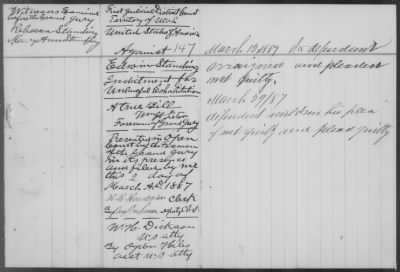 Witnesses Examined
before the Grand Jury
Rebecca Standing
Mary Armstrong
First Judicial District Court
Territory of Utah
United States of America
Against 147
Edwin Standing
Indictment for
Unlawful Cohabitation
A True Bill
Foreman of Grand Jury
Presented in Open
Court by the Foreman
of the Grand Jury
in its presence
and filed by me
this 2 day of
March A.D. 1887
clerk
By deputy Clerk
W. H. Dickson
U.S. atty
By Ogden Hiles
asst U.S. atty
March 12 1887 Defendant
arraigned and pleaded
not guilty.
March 29/87
defendent withdrew his plea
of not guilty and plead guilty